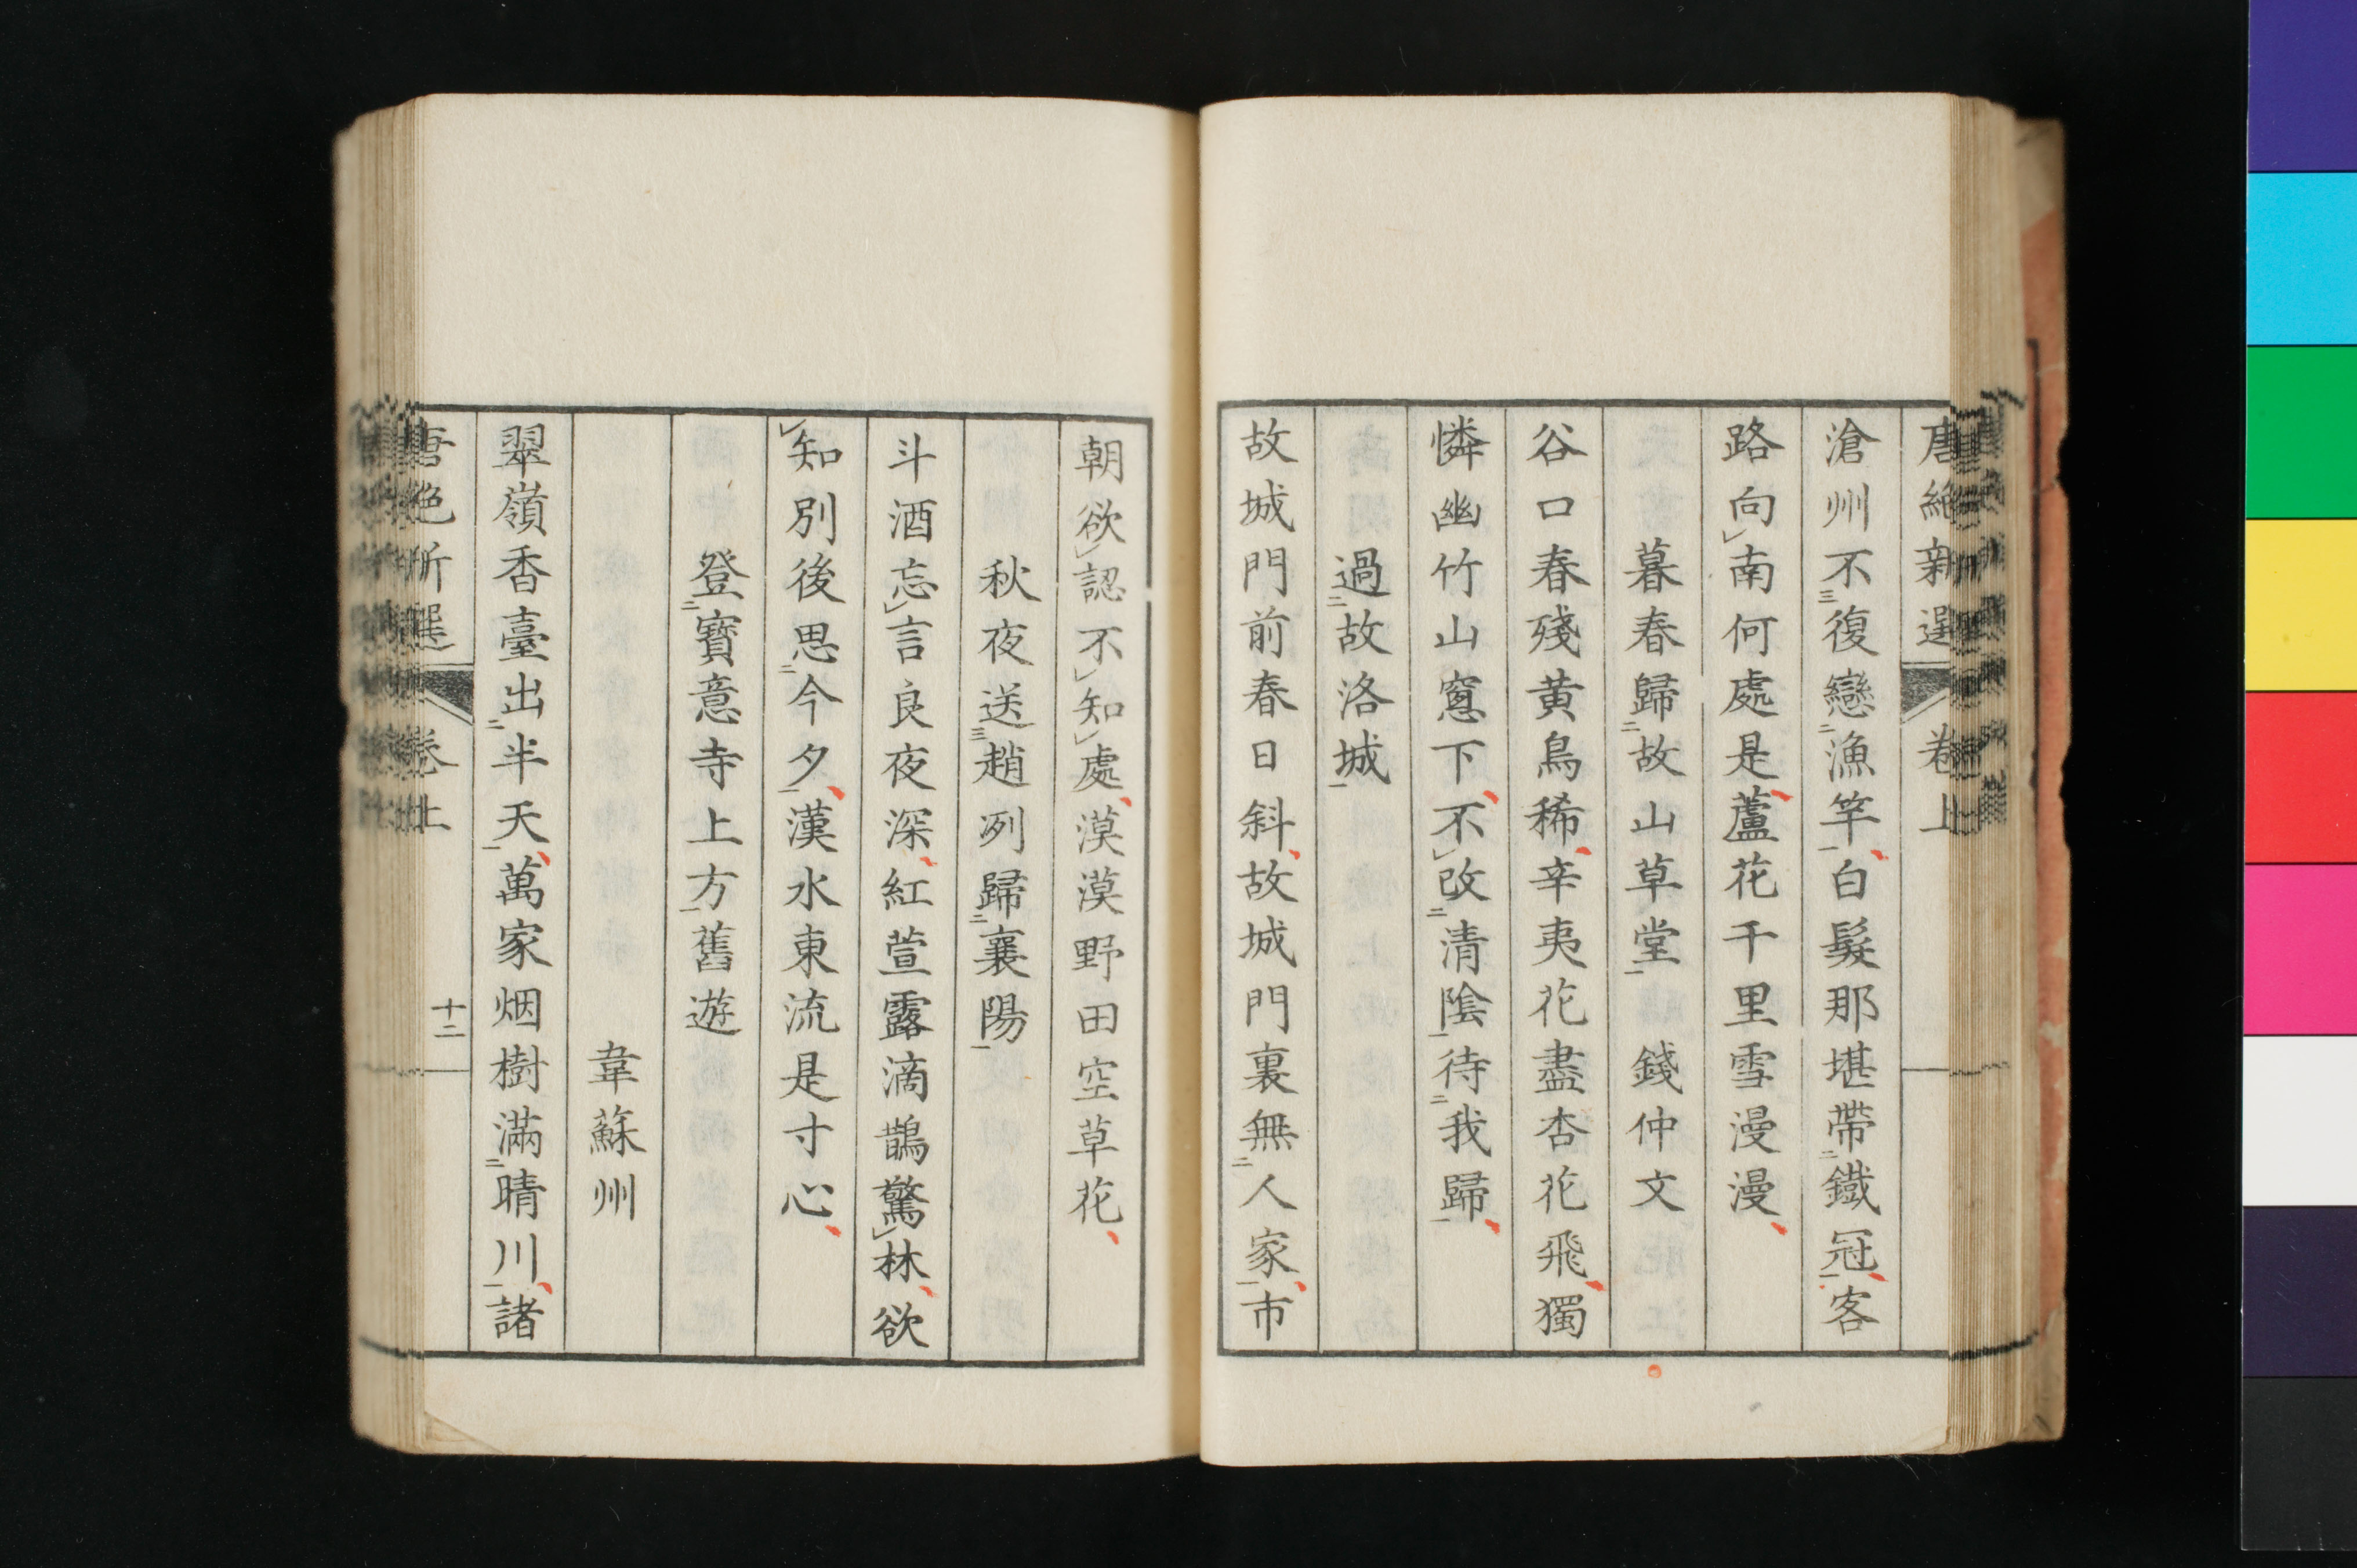 唐絶新選 卷上
滄州不三復戀二漁竿一白髮那堪帶二鐵冠一客
路向レ南何處是蘆花千里雪漫漫
暮春歸二故山草堂一 錢仲文
谷口春殘黃鳥稀辛夷花盡杏花飛獨
憐幽竹山窻下不レ改二清陰一待二我歸一
過二故洛城一
故城門前春日斜故城門裏無二人家一市
朝欲レ認不レ知レ處漠漠野田空草花
秋夜送三趙冽歸二襄陽一
斗酒忘レ言良夜深紅萱露滴鵲驚レ林欲
レ知別後思二今夕一漢水東流是寸心
登二寶意寺上方一舊遊
韋蘇州
翠嶺香臺出二半天一萬家烟樹滿二晴川一諸
唐絶新選 卷上 十二